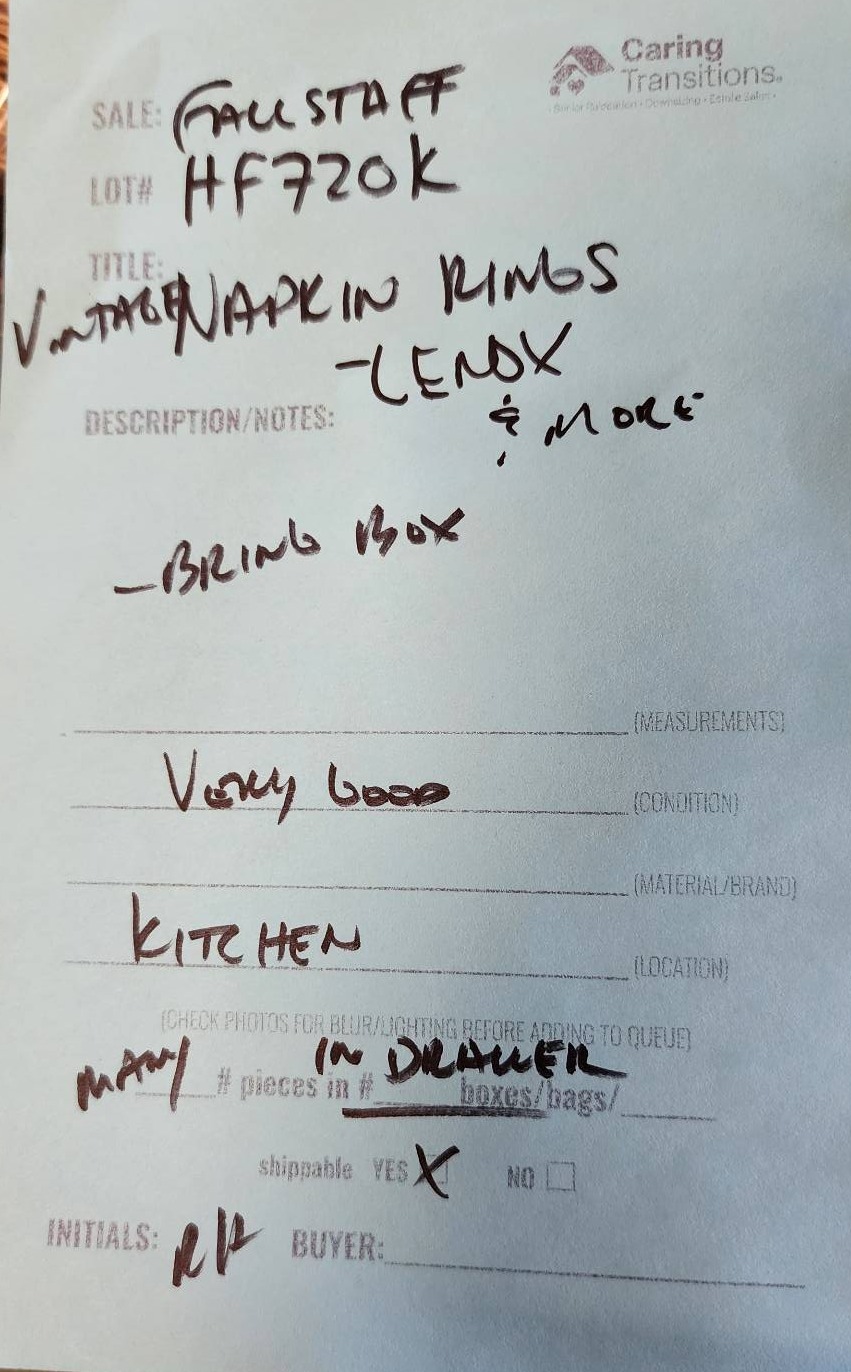 Caring
Transitions®
SALE: FALLSTAFF
LOT# HF720K
TITLE:
VINTAGE NAPKIN RINGS
-LENOX
& MORE
DESCRIPTION/NOTES:
-BRING BOX
(MEASUREMENTS)
VERY GOOD (CONDITION)
(MATERIAL/BRAND)
KITCHEN (LOCATION)
(CHECK PHOTOS FOR BLUR/LIGHTING BEFORE ADDING TO QUEUE)
IN DRAWER
MANY # pieces in # boxes/bags/
shippable YES X NO
INITIALS: RH BUYER: